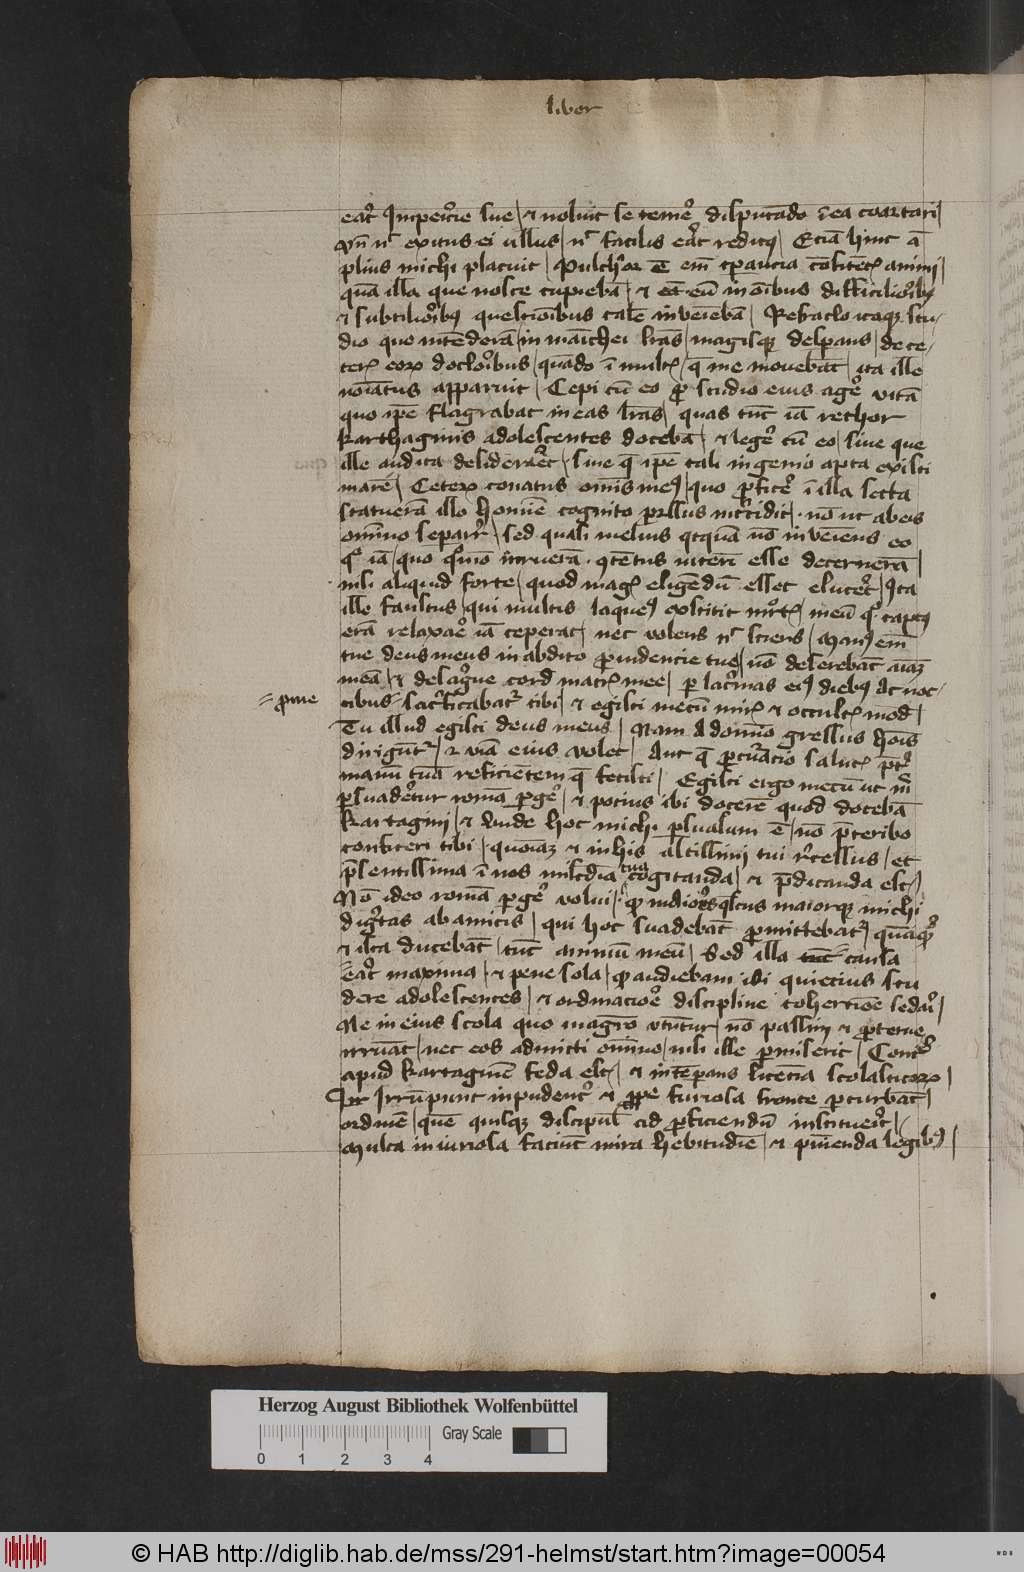 liber
eāt Imperitie sue / et noluit se temere disputādo ī ea coartari /
vn̄ nec exitus ei ullus / nec facilis eāt reditus / Etiā hinc ā
plius michi placuit / Pulchrior ē em̄ tperancia cōfitētis animi /
quā illa que nosce cupiebā / et et eū in oībus difficilioribus
et subtilioribus questiōibus talē inveiebā / Refracto itaque stu-
dio quo intēderā in māichei lrās / magisque desperans / de ce-
teris eorum doctoribus / quādo ī multis / que me movebāt / ita ille
noiātus apparuit / Cepi cū eo pro studio eius agere vitā
quo ipe flagrabat in eas lrās / quas tūc iā rethor
karthaginis adolescentes docebā / et legere cū eo / sive que
ille audita desideraret / sive que ipe tali ingenio apta existi
marē / Ceterum conatus omīs meus / quo proficere ī illa secta
statuerā illo homīe cognito prorsus intcidit / nō ut ab eis
omīno separer / sed quasi melius qcquā nō inveiens eo
quo iā / quo quomō irruerā cōtētus interī esse decernerā /
nisi aliquid forte / quod magis eligēdū esset eluceret / Ita
ille faustus / qui multis laqueus exstitit mortis / meū quo captus
erā relaxare iā ceperat / nec volens nec sciens / Manus em̄
tue deus meus in abdito providencie tue / nō deserebāt aīaz
meā / et de sāgue cordis matris mee / per lacrimas eius diebus ac noc-
= prme
tibus = sacrificabatur tibi / et egisti mecū miris et occultis modis
Tu illud egisti deus meus / Nam A domīo gressus hoīs
dirigūtur / et viā eius volet / Aut que procuratio salutis pter
manū tuā reficientem que fecisti / Egisti ergo mecū ut mi
psuaderetur romā pergere / et pocius ibi docere quod docebā
kartagini / et Unde hoc michi psuasum ē / nō preteribo
confiteri tibi / quoniaz et in his altissimi tui recessus / et
psentissima ī nos misēdia tua cogitanda / et pdicanda est /
Nō ideo romā pergere volui / quod maiores questus maiorque michi
dignitas ab amicis / qui hoc suadebāt promittebatur / quāquam
et ista ducebāt / tūc animū meū / Sed illa tūc causa
eāt maxima / et pene sola / quod audiebam ibi quietius stu
dere adolescentes / et ordinatiore discipline cohertiōe sedari /
Ne in eius scola quo magistro utūtur / nō passim et proterve
irruāt / nec eos admicti omīno / nisi ille permiserit / Contra
apud kartaginē feda est / et intēperans licēcia scolasticorum /
Irrūpunt inpudenter et ppe furiosa fronte perturbāt /
ordinē / quē quisque discipulis ad proficiendū instituerit /
Multa iniuriosa faciūt mira hebitudīe / et puniēda legibus /
Herzog August Bibliothek Wolfenbüttel
Gray Scale
0 1 2 3 4
© HAB http://diglib.hab.de/mss/291-helmst/start.htm?image=00054